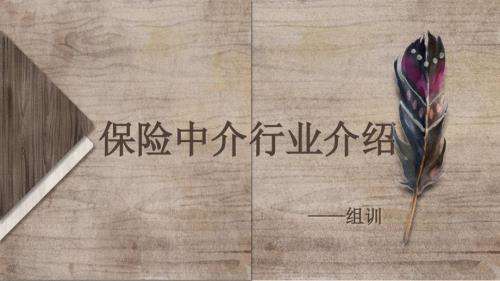 保险中介行业介绍
——组训